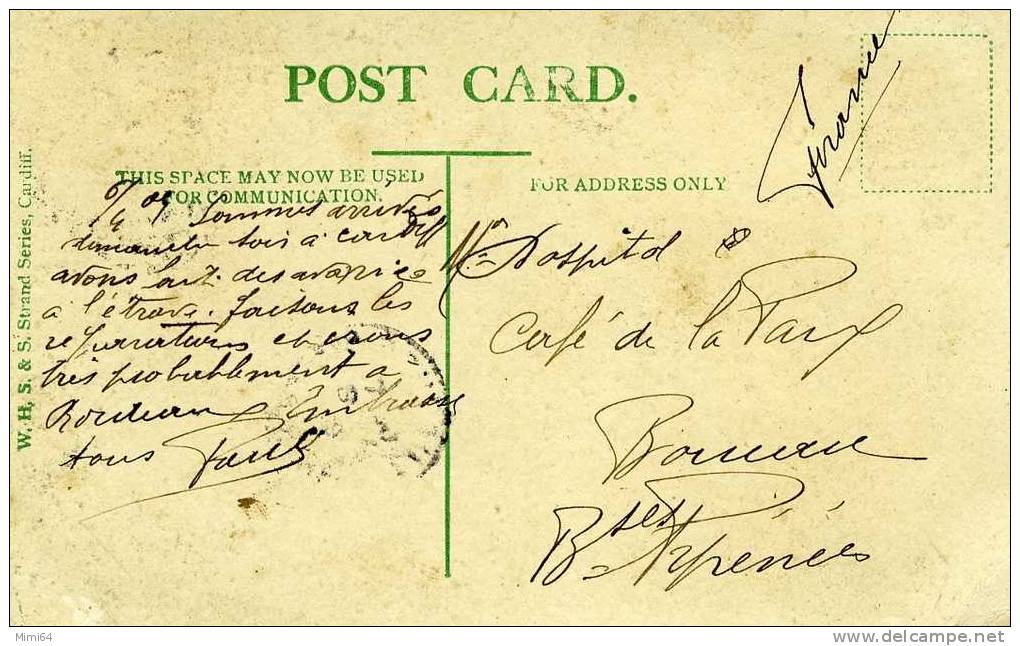 POST CARD.
France
THIS SPACE MAY NOW BE USED
FOR COMMUNICATION.
FOR ADDRESS ONLY
6/4 09 Sommes arrivés
dimanche soir à Cardiff
avons des avaries
à l'étrave. faisons les
reparrations et irons
très probablement a
Bordeaux Embrasse
tous Paul
Hospital
Café de la Paix
Boucau
Bses Pyrénées
W. H. S. & S. Strand Series, Cardiff.
Mimi64
delcampe.net